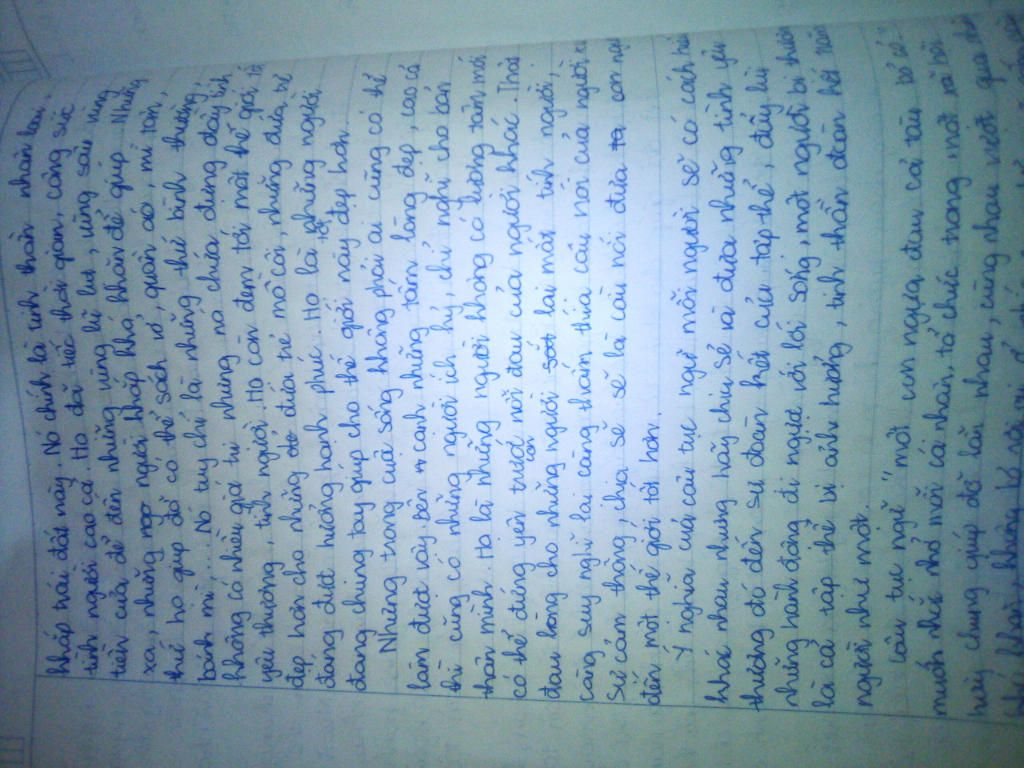 khắp trái đất này. Nó chính là tinh thần nhân loại,
tình người cao cả. Họ đã tiếc thời gian, công sức
tiền của để đến những vùng lũ lụt, vùng sâu vùng
xa, những người khắp khó khăn để giúp. Những
thứ họ giúp đỡ có thể sách vở, quần áo, mì tôm,
bánh mì,... Nó tuy chỉ là những thứ bình thường
không có nhiều giá trị nhưng nó chứa đựng đầy tình
yêu thương, tình người. Họ còn đem tới một thế giới tốt
đẹp hơn cho những đứa trẻ mồ côi, những đứa trẻ
đang được hưởng hạnh phúc. Họ là tốt những người
đang chung tay giúp cho thế giới này đẹp hơn.
Nhưng trong cuộc sống không phải ai cũng có thể
làm được vậy. Bên cạnh những tấm lòng đẹp, cao cả
thì cũng có những người ích kỷ, chỉ nghĩ cho bản
thân mình. Họ là những người không có lương tâm mới
có thể đứng yên trước nỗi đau của người khác. Thật
đau lòng cho những người còn lại mất tính người,
càng suy nghĩ lại càng thấm thía câu nói của người
Sự cảm thông, chia sẻ sẽ là cầu nối đưa con người
đến một thế giới tốt hơn.
Ý nghĩa của câu tục ngữ mỗi người sẽ có cách hiểu
khác nhau nhưng hãy chia sẻ và đưa những tình yêu
thương đó đến sự đoàn kết của tập thể, đẩy lùi
những hành động đi ngược với lối sống, một người bị thiên
là cả tập thể bị ảnh hưởng, tinh thần đoàn kết trăm
người như một.
Câu tục ngữ "một con ngựa đau cả tàu bỏ cỏ"
muốn nhắc nhở mỗi cá nhân, tổ chức trong một xã hội
hãy chung giúp đỡ lẫn nhau, cùng nhau vượt qua
khó khăn